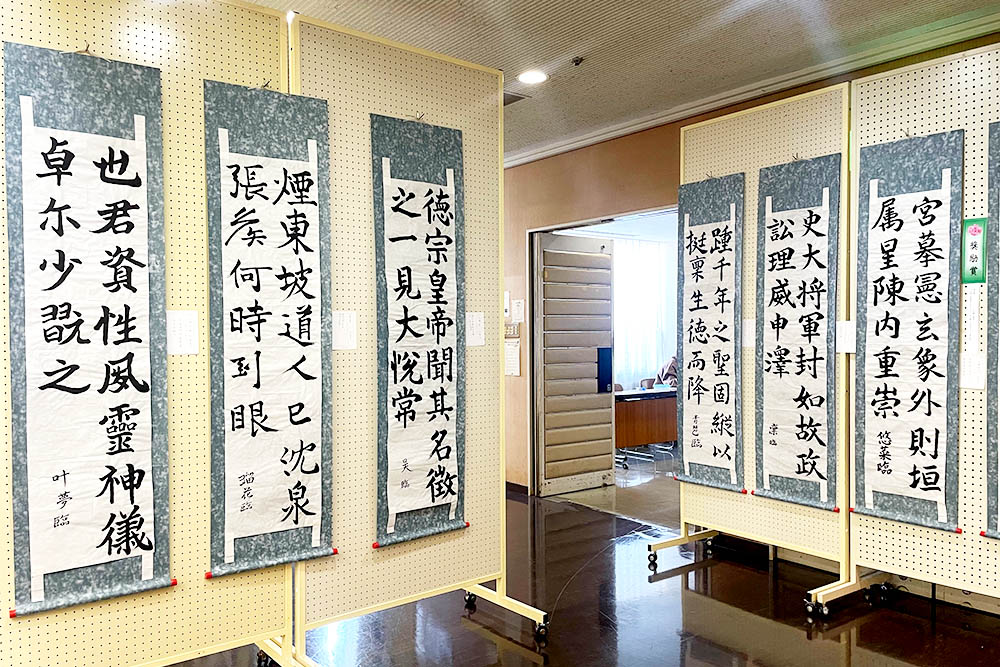 也君資性夙靈神儀
卓尓少翫之
叶夢臨
煙東坡道人已沈泉
張矦何時到眼
瑠花臨
德宗皇帝聞其名徴
之一見大悅常
臨
踵千年之聖固縱以
挺禀生德而降
臨
史大将軍封如故政
訟理威申澤
臨
宮墓憲玄象外則垣
属星陳内重崇
悠菜臨
奨励賞